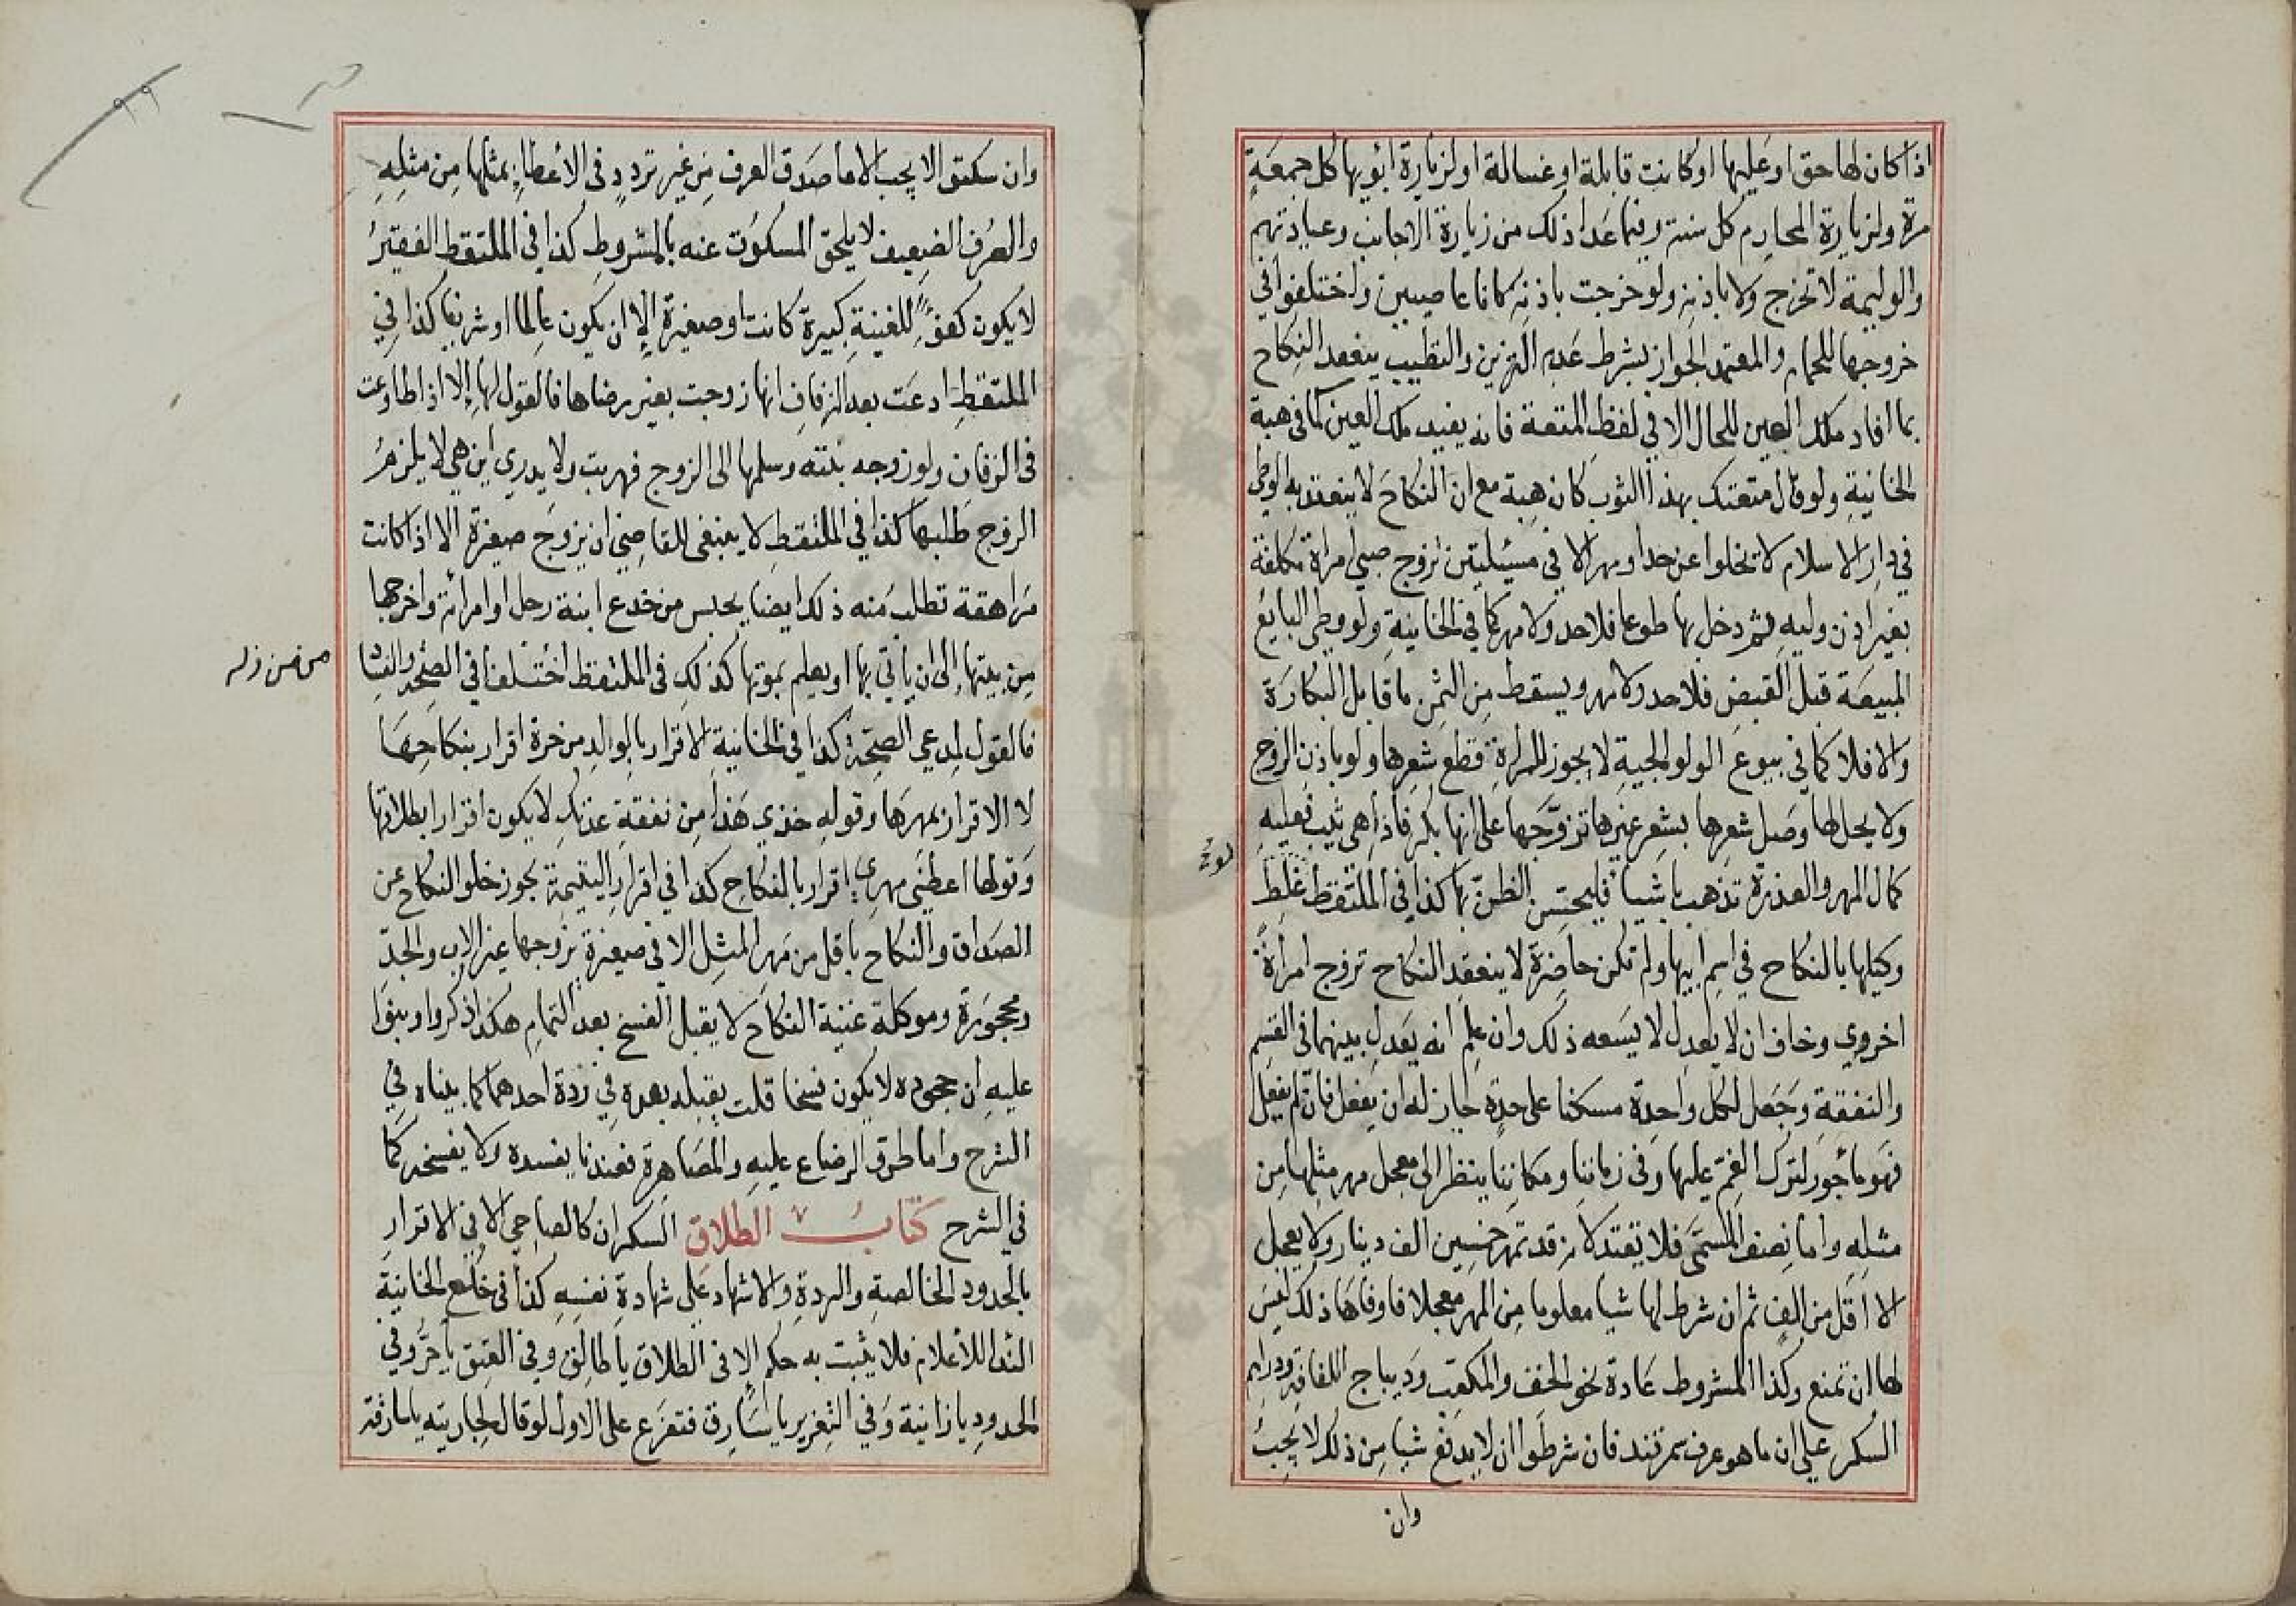 اذا كان لها حق او عليها او كانت قابلة او غسالة او لزيارة ابويها كل جمعة
مرة ولزيارة المحارم كل سنة وفيما عدا ذلك من زيارة الاجانب وعيادتهم
والوليمة لا تخرج ولا باذنه ولو خرجت باذنه كانا عاصيين واختلفوا في
خروجها للحمام والمعتمد الجواز بشرط عدم التزين والتطيب ينعقد النكاح
بما افاد ملك العين للحال الا في لفظ المتعة فانه يفيد ملك العين كما في هبة
الخانية ولو قال متعتك بهذا الثوب كان هبة مع ان النكاح لا ينعقد به الوطئ
في دار الاسلام لا تخلوا عن حد او مهر الا في مسئلتين تزوج صبي امراة مكلفة
بغير اذن وليه ثم دخل بها طوعا فلا حد ولا مهر كما في الخانية ولو وطئ البايع
المبيعة قبل القبض فلا حد ولا مهر ويسقط من الثمن ما قابل البكارة
والا فلا كما في بيوع الولوالجية لا يجوز للمراة قطع شعرها ولو باذن الزوج
ولا يحل لها وصل شعرها بشعر غيرها تزوجها على انها بكر فاذا هي ثيب فعليه
كمال المهر والعذرة تذهب باشيا فليحسن الظن بها كذا في الملتقط غلط
وكيلها بالنكاح في اسم ابيها ولم تكن حاضرة لا ينعقد النكاح تزوج امراة
اخروي وخاف ان لا يعدل لا يسعه ذلك وان علم انه يعدل بينهما في القسم
والنفقة وجعل لكل واحدة مسكنا على حدة جاز له ان يفعل فان لم يفعل
فهو ماجور لترك الغم عليها وفي زماننا ومكاننا ينظر الى معجل مهر مثلها من
مثله واما نصف المسمى فلا يعتد لانه قد تمهر خمسين الف دينار ولا يعجل
الا اقل من الف ثم ان شرط لها شيا معلوما من المهر معجلا فاوفاها ذلك ليس
لها ان تمنع وكذا المشروط عادة نحو الخف والمكعب وديباج اللفافة ودراهم
السكر على ان ما هو عرف سمرقند فان شرطوا ان لا يدفع شيا من ذلك لا يجب
وان
وان سكتوا لا يجب الا ما صدق العرف من غير تردد في الاعطاء بمثلها من مثله
والعرف الضعيف لا يلحق المسكوت عنه بالمشروط كذا في الملتقط الفقير
لا يكون كفؤا للغنية كبيرة كانت او صغيرة الا ان يكون عالما او شريفا كذا في
الملتقط ادعت بعد الزفاف انها زوجت بغير رضاها فالقول لها الا اذا طاوعت
في الزفاف ولو زوجه بنته وسلمها الى الزوج فهربت ولا يدري اين هي لا يلزم
الزوج طلبها كذا في الملتقط لا ينبغي للقاضي ان يزوج صغيرة الا اذا كانت
مراهقة تطلب منه ذلك ايضا يحبس من خدع ابنة رجل او امراته واخرجها
من بيتها الى ان ياتي بها او يعلم بموتها كذلك في الملتقط اختلفا في الصحة والفساد
فالقول لمدعي الصحة كذا في الخانية الاقرار بالولد من حرة اقرار بنكاحها
لا الاقرار بمهرها وقوله خذي هذا من نفقة عدتك لا يكون اقرارا بطلاقها
وقولها اعطني مهري اقرار بالنكاح كذا في اقرار اليتيمة يجوز خلو النكاح عن
الصداق والنكاح باقل من مهر المثل الا في صغيرة يزوجها غير الاب والجد
ومحجورة وموكلة غنية النكاح لا يقبل الفسخ بعد التمام هكذا ذكروا وبنوا
عليه ان جحوده لا يكون فسخا قلت يقبله بعده في ردة احدهما كما بيناه في
الشرح واما طرو الرضاع عليه والمصاهرة فعندنا يفسده ولا يفسخه كما
في الشرح كتاب الطلاق السكران كالصاحي الا في الاقرار
بالحدود الخالصة والردة والاشهاد على شهادة نفسه كذا في خلع الخانية
الندا للاعلام فلا يثبت به حكم الا في الطلاق يا طالق وفي العتق يا حر وفي
الحدود يا زانية وفي التعزير يا سارق فتفرع على الاول لو قال لجاريته يا سارقة